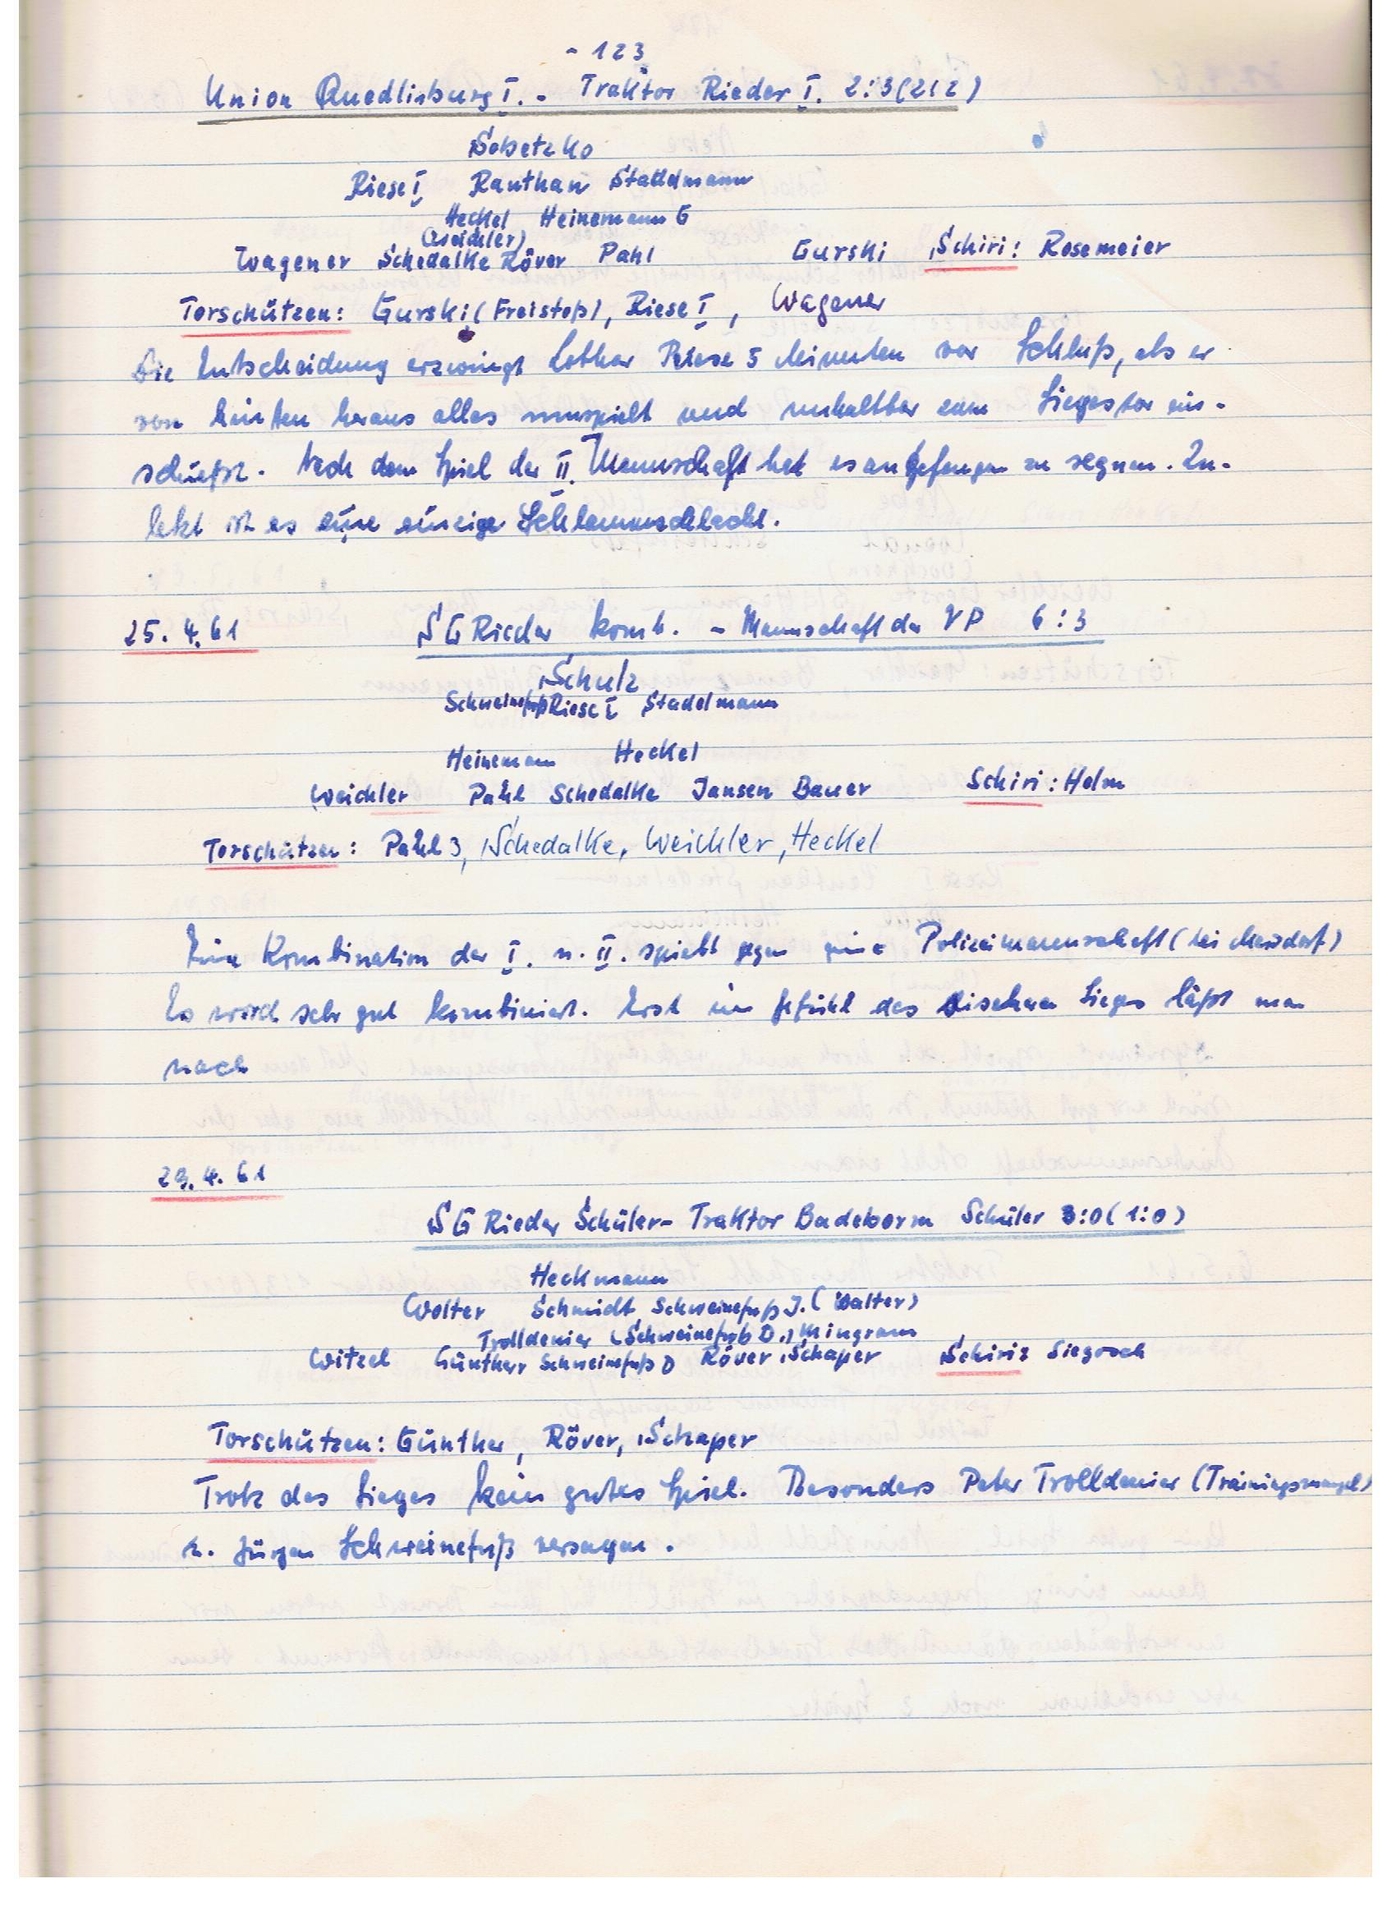 - 123
Union Quedlinburg I. - Traktor Rieder I. 2:3 (2:2)
Sobetzko
Riese I Rauthan Stadelmann
Heckel Heinemann G
(Weichler)
Wagener Schedalke Röver Pahl Gurski Schiri: Rosemeier
Torschützen: Gurski (Freistoß), Riese I, Wagener
Die Entscheidung erzwingt Lothar Riese 5 Minuten vor Schluß, als er
von hinten heraus alles umspielt und unhaltbar zum Siegestor ein-
schießt. Nach dem Spiel der II. Mannschaft hat es angefangen zu regnen. Zu-
letzt ist es eine einzige Schlammschlacht.
25.4.61 SG Rieder komb. - Mannschaft der VP 6:3
Schulz
Schweinefuß Riese I Stadelmann
Heinemann Heckel
Weichler Pahl Schedalke Jansen Bauer Schiri: Helm
Torschützen: Pahl 3, Schedalke, Weichler, Heckel
Eine Kombination der I. u. II. spielt gegen eine Polizeimannschaft (bei
Es wird sehr gut kombiniert. Erst im Gefühl des sicheren Sieges läßt man
nach
29.4.61
SG Rieder Schüler - Traktor Badeborn Schüler 3:0 (1:0)
Heckmann
Wolter Schmidt Schweinefuß J. (Walter)
Trolldenier (Schweinefuß D.) Mingram
Witzel Günther Schweinefuß D Röver Schaper Schiri: Siegosch
Torschützen: Günther, Röver, Schaper
Trotz des Sieges kein gutes Spiel. Besonders Peter Trolldenier (Trainingsmangel)
u. Jürgen Schweinefuß versagen.